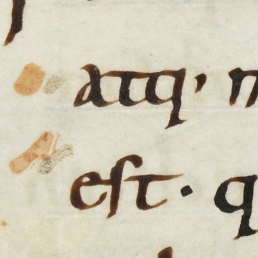 atq;
est · q